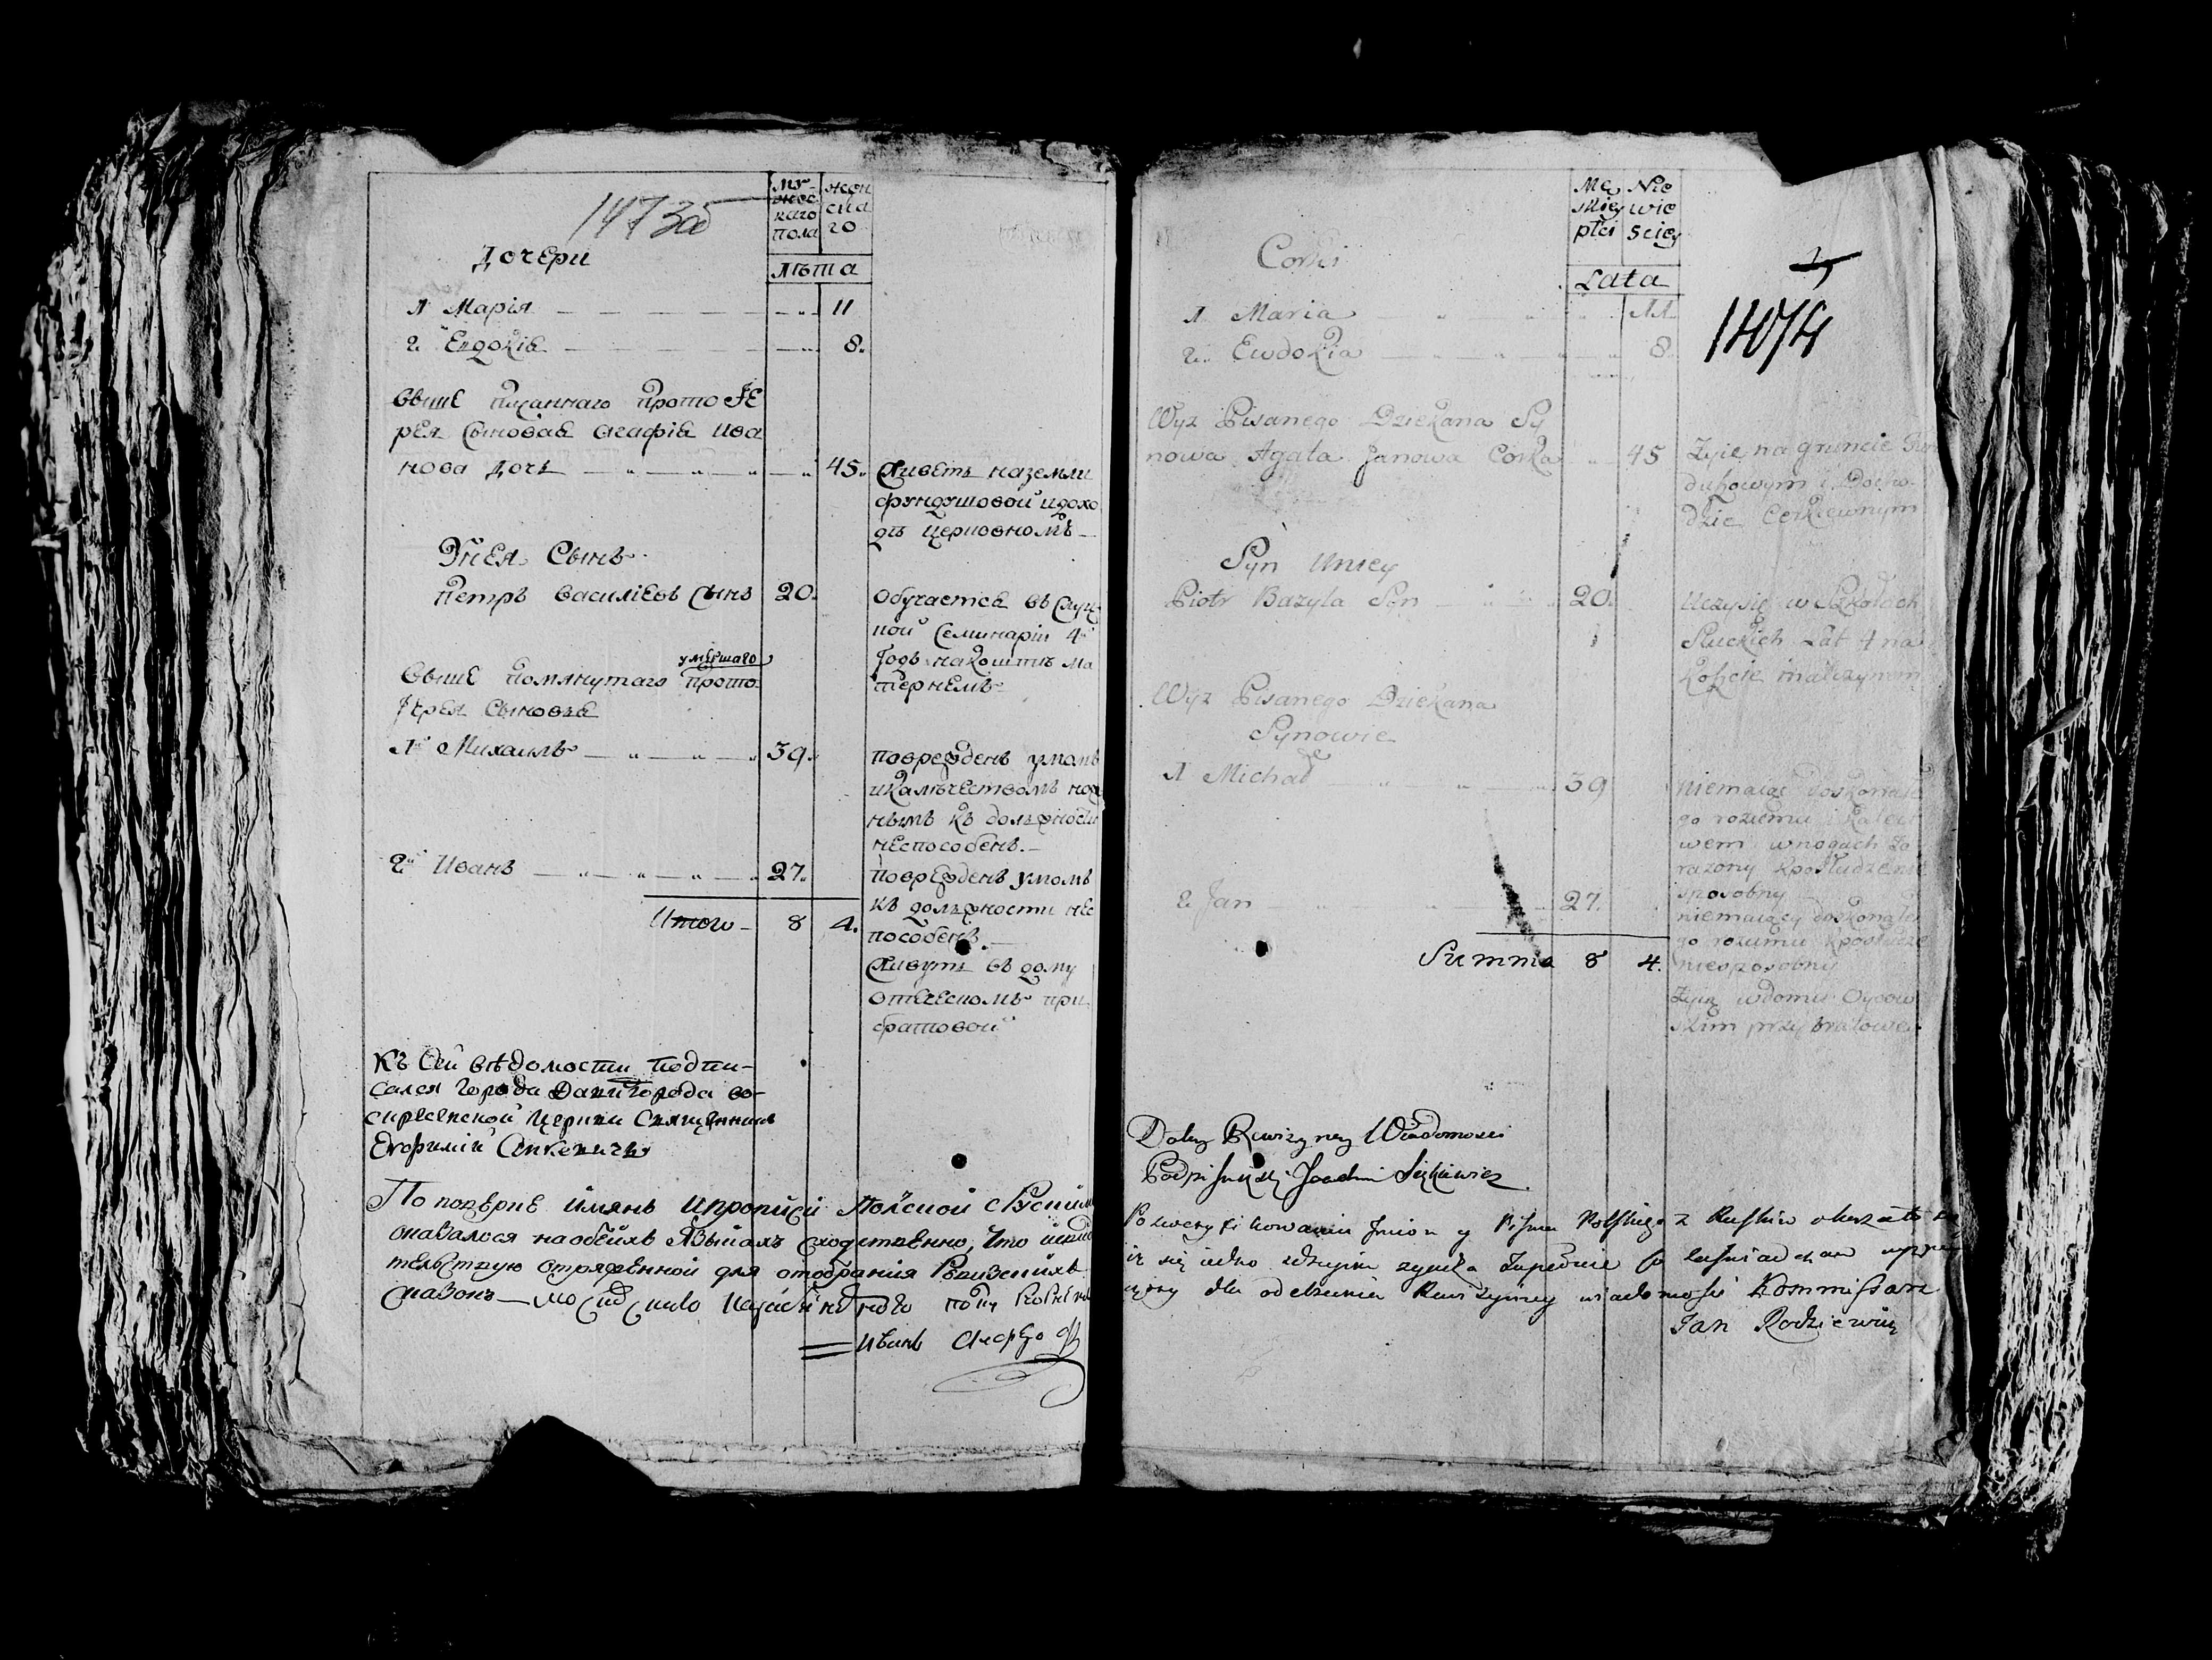 1473об
Дочери
муж-
ескаго
пола
жен
ска
го
лѣта
1. Марія — — — 11
2. Евдокія — — — 8.
Выше писаннаго прото Іе
рея сыновая Агафія Ива
нова дочь — „ — „ — 45.
Живетъ на земли
фундушовой и дохо
дѣ церковномъ —
У нея Сынъ
Петръ Василіевъ сынъ 20.
Обучается въ Слуц
кой Семинаріи 4й
годъ на коштѣ ма
тернемъ
умершаго
Выше помянутаго прото
Іерея Сыновья
1й Михаилъ — „ — „ — 39.
поврежденъ умомъ
и калѣчествомъ нож
нымъ къ должности
неспособенъ. —
2й Иванъ — „ — „ — 27.
поврежденъ умомъ
къ должности нес
пособенъ. —
Итого — 8 4.
Живутъ въ дому
отческомъ при
братовой
Къ сей вѣдомости подпи-
сался города Давигорода во-
скресенской церкви Священникъ
По поверке имянъ и прописи Польской с Руским
оказалося на обеихъ языкахъ сходственно, что
для отобрания Ревизскихъ
сказокъ —
Иванъ
Me
skiey
płci
Nie
wie
sciey
Lata
1474
Corki
1. Maria — „ — „ 11
2. Ewdokia — „ — „ 8
Wyz Pisanego Dziekana Sy
nowa Agata Janowa Corka „ 45
Zyie na gruncie Fun
duszowym i Docho-
dzie Cerkiewnym
Syn Uniey
Piotr Bazyla Syn — „ „ 20.
Uczysię w Szkołach
Słuckich Lat 4 na
Koszcie Matczynem
Wyz Pisanego Dziekana
Synowie
1 Michał „ „ 39
niemaiąc doskonałe
go rozumu i Kalect
wem w nogach Za
razony
sposobny
2. Jan — „ — 27.
niemaiący doskonałe
go rozumu
niesposobny
Summa 8 4.
Zyią w domu Oycow
skim przy bratowey
Do tey Rewizyney Wiadomosci
Podpisuję się Joachim
Po zweryfikowaniu Imion y Pisma Polskiego z Ruskim okazało
się
dla odebrania Rewizyiney wiadomości Kommissarz
Jan Rodziewicz